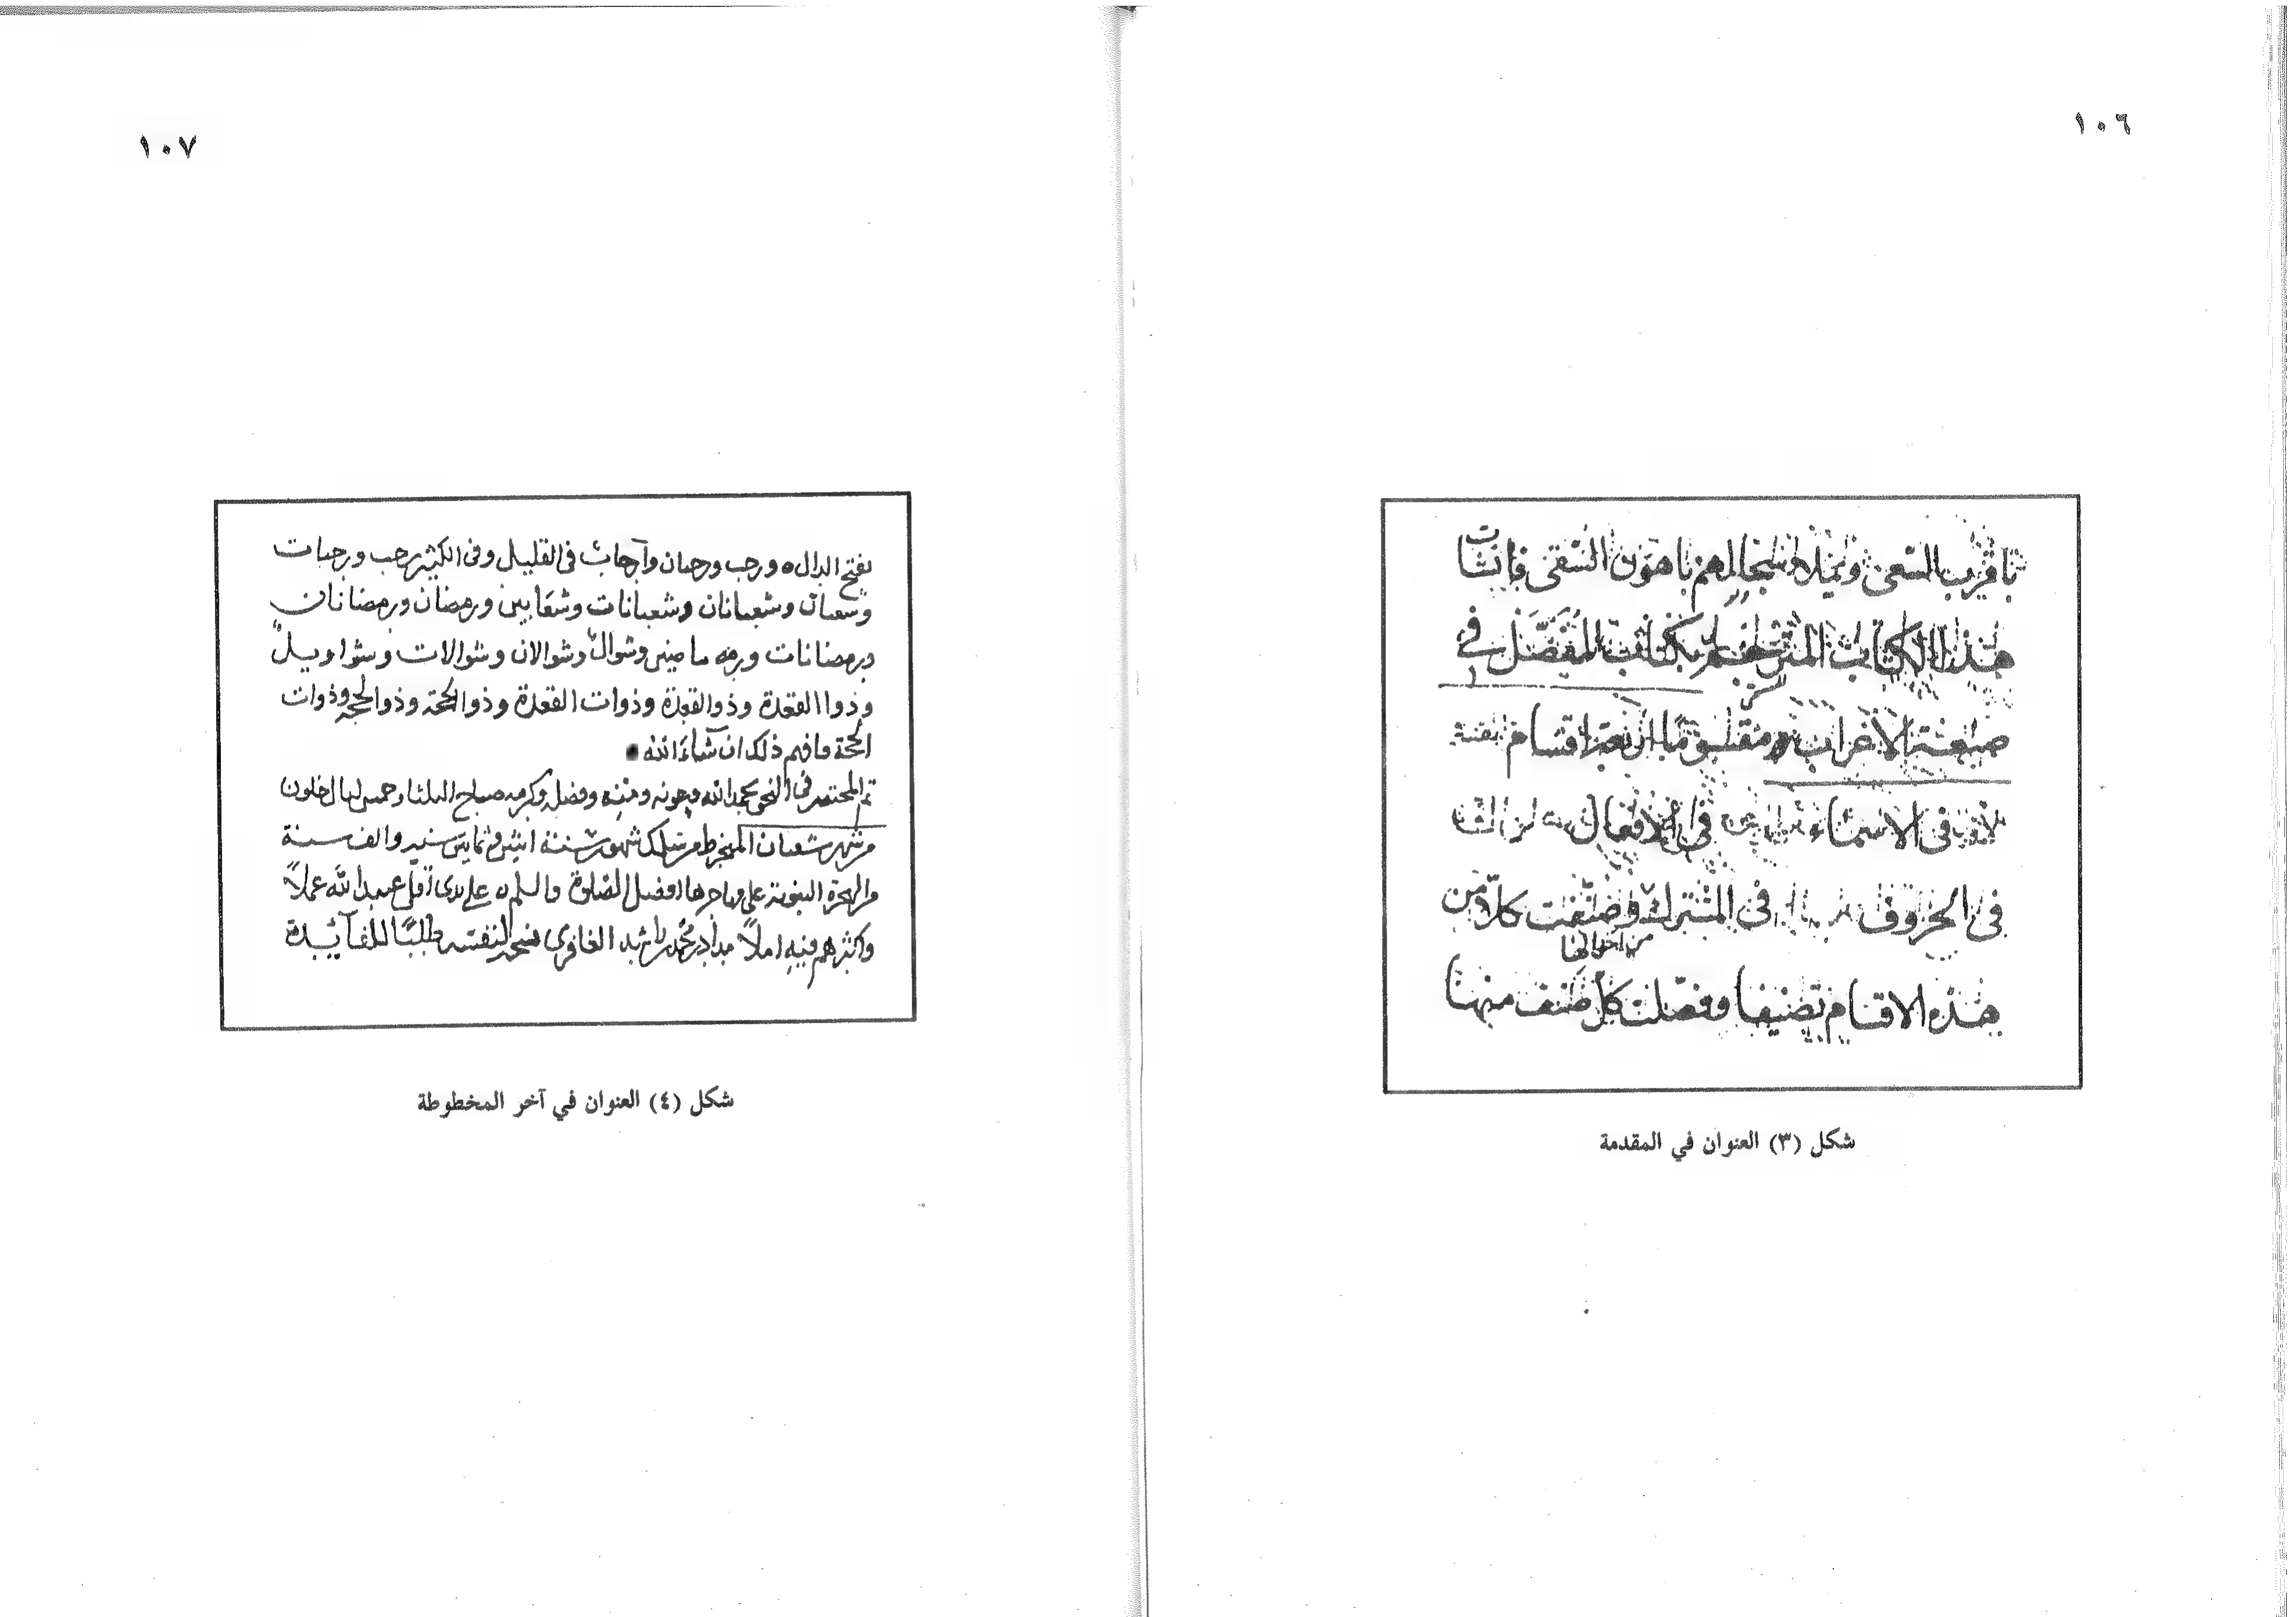 ١٠٦
باقرب السعي ويملأ سجالهم باهون السقي فانشأت
هذا الكتاب المترجم بكتاب المفصل في
صنعة الاعراب مقسوما اربعة اقسام القسم
الاول في الاسماء الثاني في الافعال الثالث
في الحروف الرابع في المشترك وصنفت كلا من
من احوالها
هذه الاقسام تصنيفا وفصلت كل صنف منها
شكل (٣) العنوان في المقدمة
١٠٧
بفتح الدال ه ورجب ورجبان وآرجابٌ في القليل وفى الكثير رجب ورجبات
وشعبان وشعبانان وشعبانات وشعابين ورمضان ورمضانان
ورمضانات ورماضين وشوالٌ وشوالان وشوالات وشواويل
وذوا القعدة وذوا القعدة وذوات القعدة وذوالحجة وذوا الحجة وذوات
الحجة فافهم ذلك ان شآءَ الله
تم المختصر في النحو بحمد الله وعونه ومنه وفضله وكرمه صباح الثلثاء وخمس ليال خلون
من شهر شعبان المنخرط من سلك شهور سنة اثنين وثمانين سنة والف سنة
من الهجرة النبوية على مهاجرها افضل الصلوة والسلم ه على يدى أقل عبيد الله عملاً
واكثرهم فيه املاً مداد بن محمد بن راشد الغافرى نسخه لنفسه طلبًا للفآئدة
شكل (٤) العنوان في آخر المخطوطة